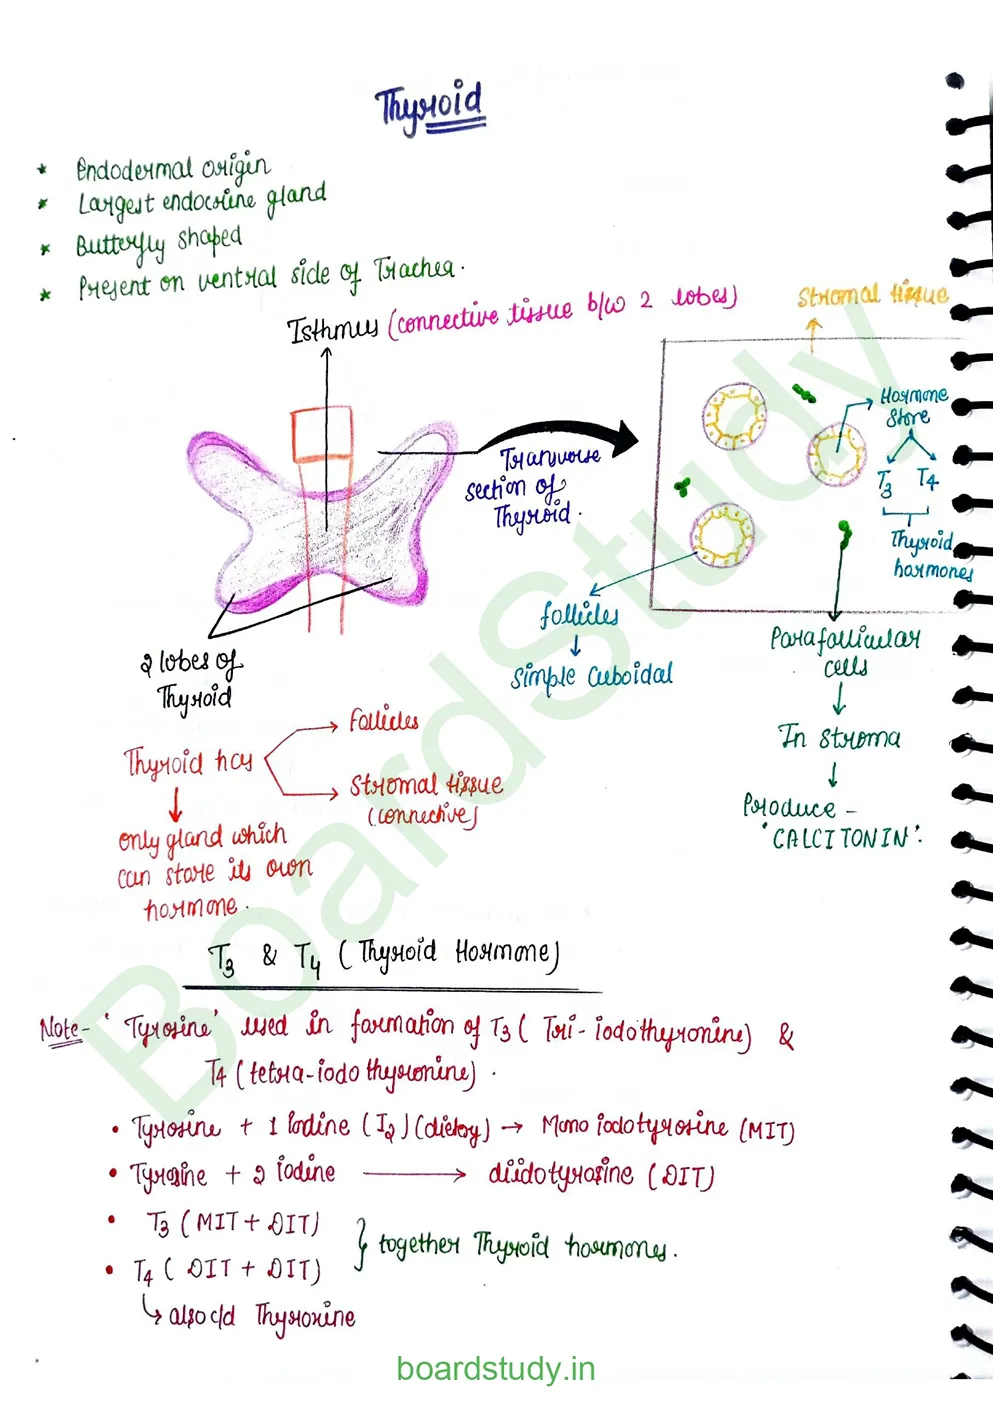 Thyroid
* Endodermal origin
* Largest endocrine gland
* Butterfly shaped
* Present on ventral side of Trachea.
Isthmus (connective tissue b/w 2 lobes)
Stromal tissue
Hormone
store
T3 T4
Thyroid
hormones
Transverse
section of
Thyroid.
follicles
↓
Simple Cuboidal
Parafollicular
cells
↓
In stroma
↓
Produce -
'CALCITONIN'.
2 lobes of
Thyroid
Thyroid has
Follicles
Stromal tissue
(connective)
only gland which
can store its own
hormone.
T3 & T4 (Thyroid Hormone)
Note- 'Tyrosine' used in formation of T3 (Tri-iodothyronine) &
T4 (tetra-iodo thyronine).
• Tyrosine + 1 Iodine (I2) (dietary) → Mono iodotyrosine (MIT)
• Tyrosine + 2 iodine → diidotyrosine (DIT)
• T3 (MIT + DIT)
• T4 ( DIT + DIT)
} together Thyroid hormones.
↳ also c/d Thyroxine
BoardStudy
boardstudy.in